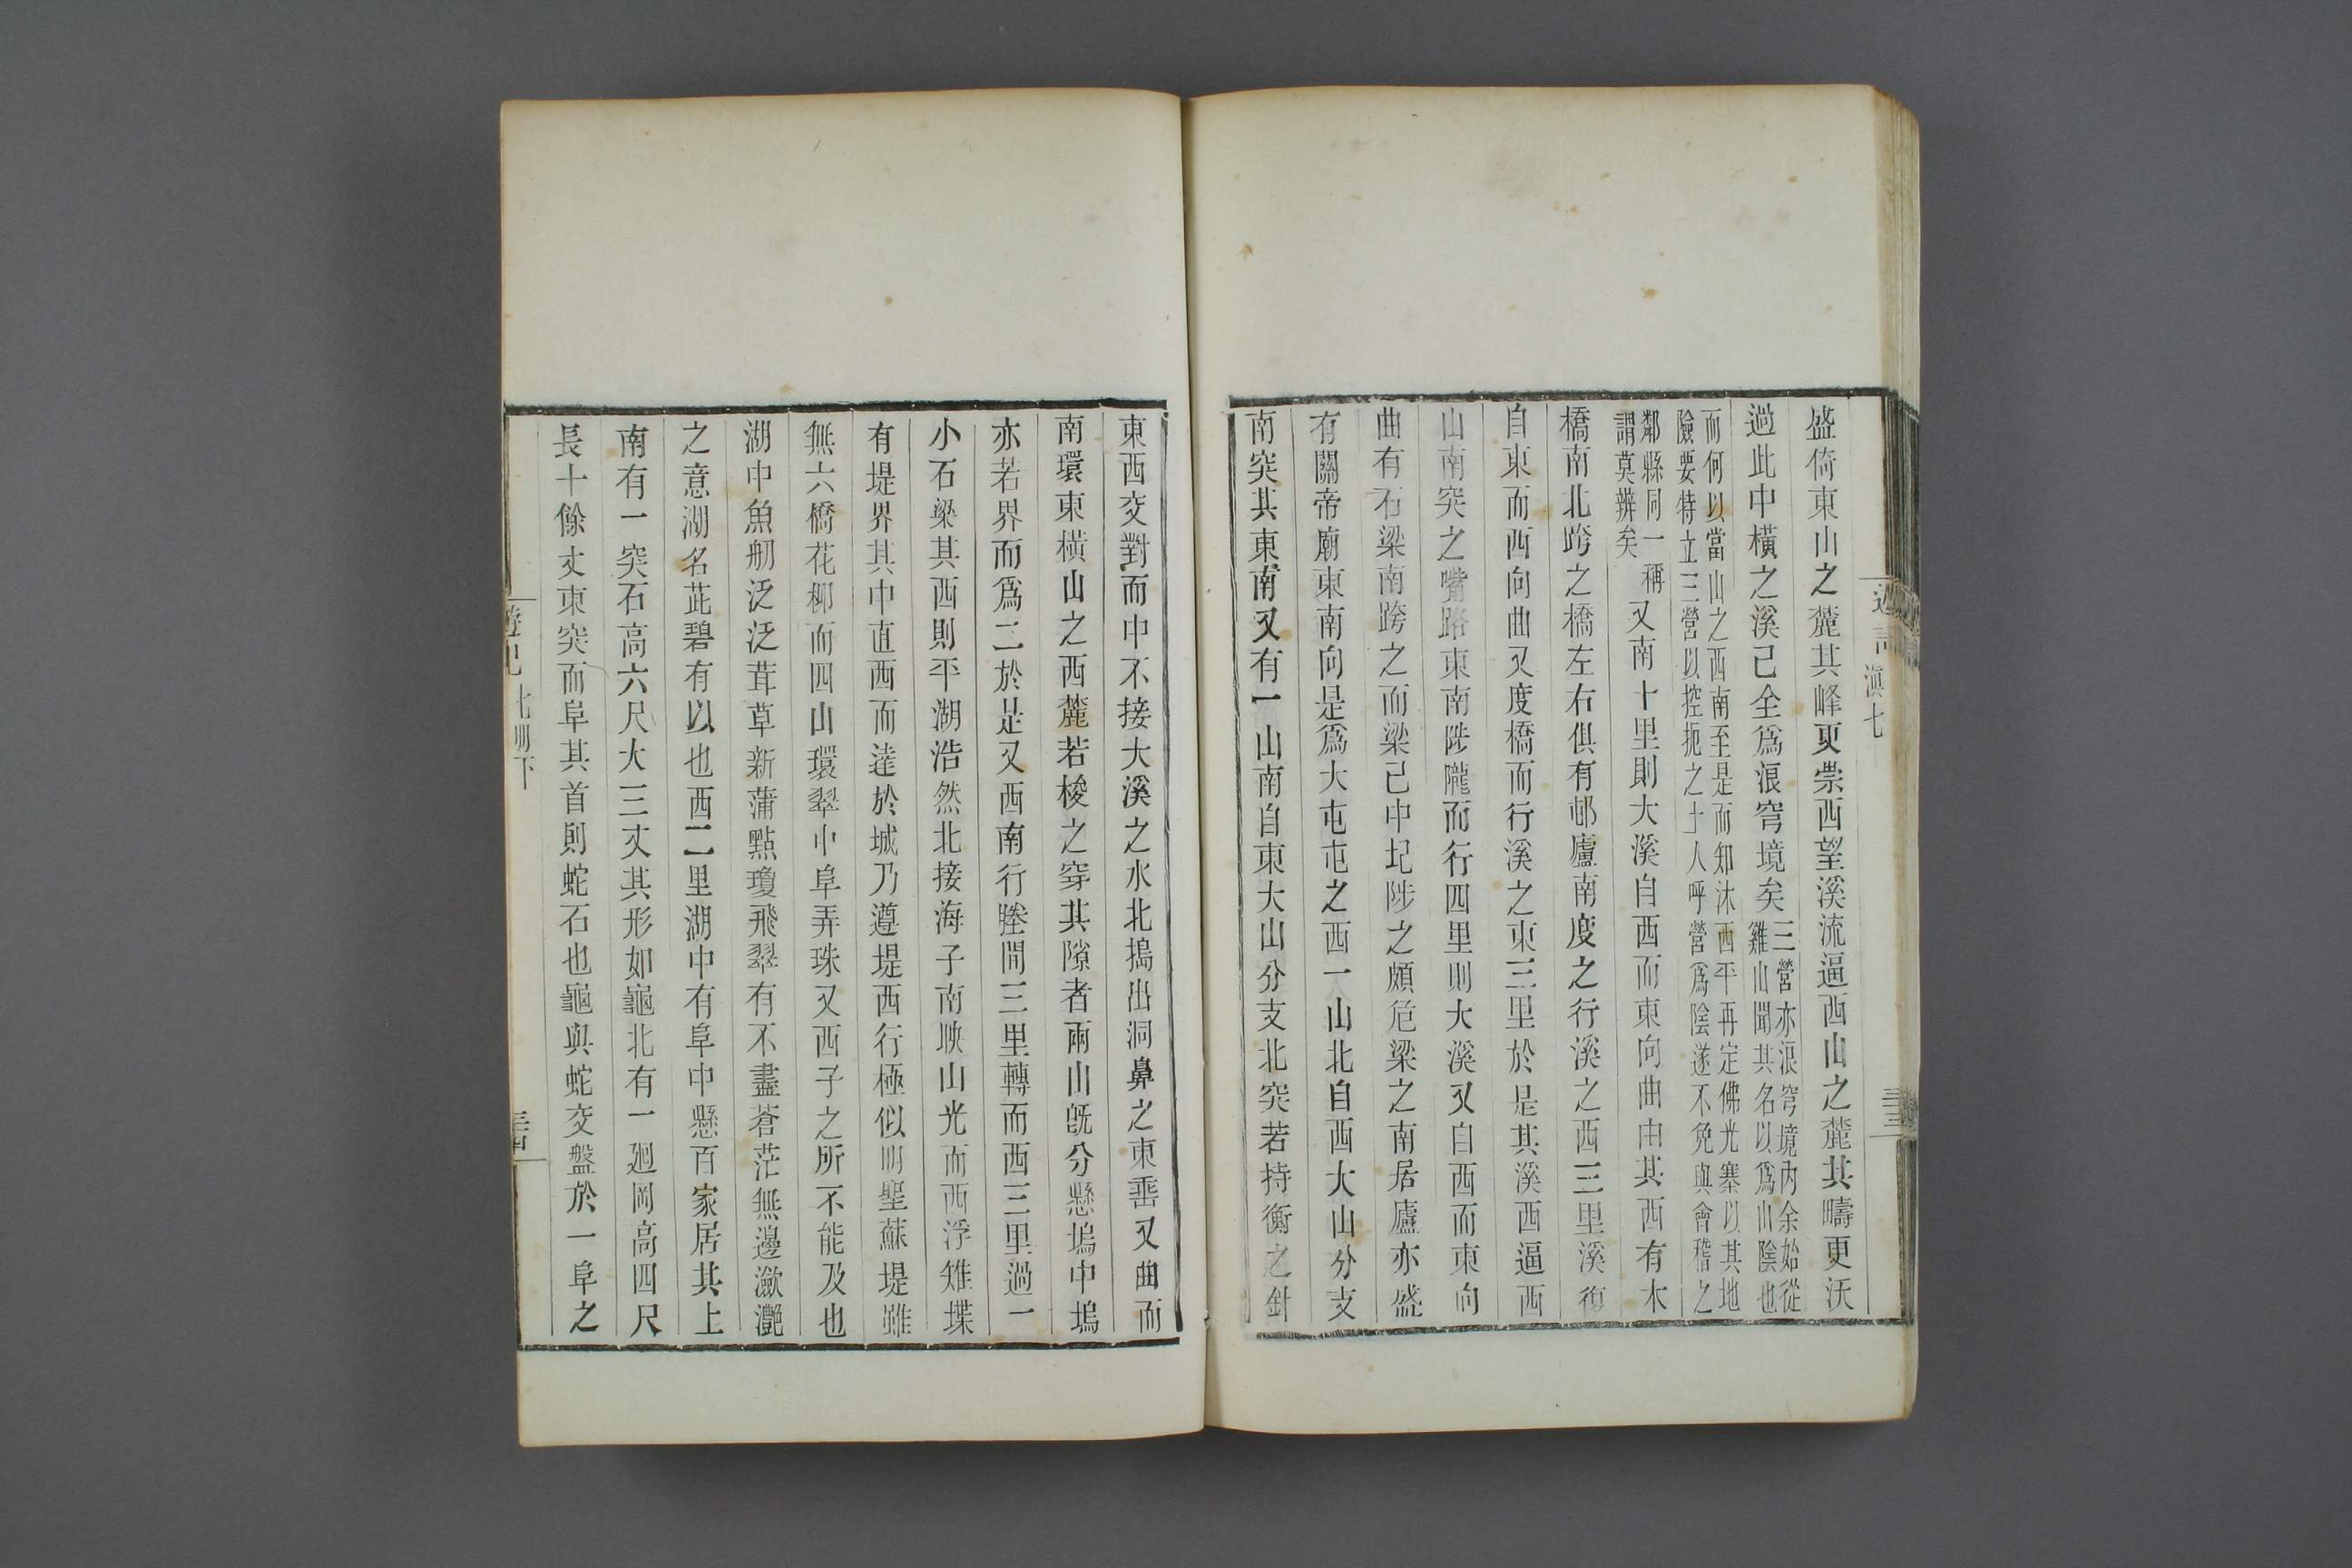 盛倚東山之麓其峰更崇西望溪流逼西山之麓其疇更沃
過此中橫之溪已全爲浪穹境矣三營亦浪穹境內余始從
雞山聞其名以爲山陰也
而何以當山之西南至是而知沐西平再定佛光寨以其地
險要特立三營以控扼之土人呼營爲陰遂不免與會稽之
鄰縣同一稱
謂莫辨矣
又南十里則大溪自西而東向曲由其西有木
橋南北跨之橋左右俱有邨廬南度之行溪之西三里溪復
自東而西向曲又度橋而行溪之東三里於是其溪西逼西
山南突之嘴路東南陟隴而行四里則大溪又自西而東向
曲有石梁南跨之而梁已中圮陟之頗危梁之南居廬亦盛
有關帝廟東南向是爲大屯屯之西一山北自西大山分支
南突其東南又有一山南自東大山分支北突若持衡之針
遊記 滇七
三三
東西交對而中不接大溪之水北搗出洞鼻之東垂又曲而
南環東橫山之西麓若梭之穿其隙者兩山旣分懸塢中塢
亦若界而爲二於是又西南行塍間三里轉而西三里過一
小石梁其西則平湖浩然北接海子南映山光而西浮雉堞
有堤界其中直西而達於城乃遵堤西行極似明聖蘇堤雖
無六橋花柳而四山環翠中阜弄珠又西子之所不能及也
湖中魚舠泛泛茸草新蒲點瓊飛翠有不盡蒼茫無邊瀲灔
之意湖名茈碧有以也西二里湖中有阜中懸百家居其上
南有一突石高六尺大三丈其形如龜北有一迴岡高四尺
長十餘丈東突而阜其首則蛇石也龜與蛇交盤於一阜之
遊記 七册下
三四